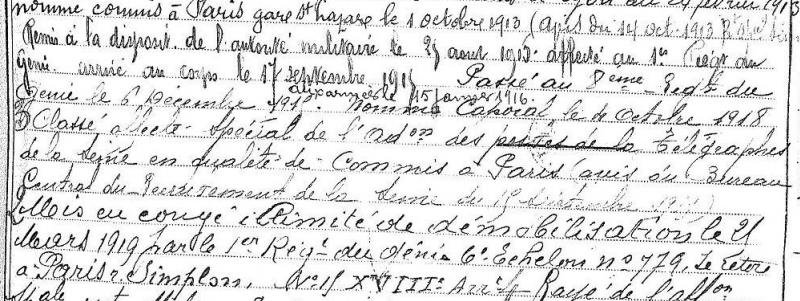 nommé commis à Paris gare St Lazare le 1 octobre 1913 (avis du 14 oct. 1913
Remis à la disposit. de l'autorité militaire le 25 aout 1915 affecté au 1er Regt du
Génie arrivé au corps le 17 septembre 1915 Passé au 8eme Regt du
aux armées le 15 janvier 1916.
Génie le 6 Décembre nommé Caporal le 4 Octobre 1918
Classé affecté spécial de l'adon des postes de la Télégraphes
de la Seine en qualité de Commis à Paris (avis du Bureau
Central du Recrutement de la Seine du
Mis en congé illimité de démobilisation le 21
Mars 1919 par le 1er Régt du Génie 6e Echelon no 779, Se retire
à Paris r. Simplon, No 15 XVIIIe Arrt Rayé de l'affon